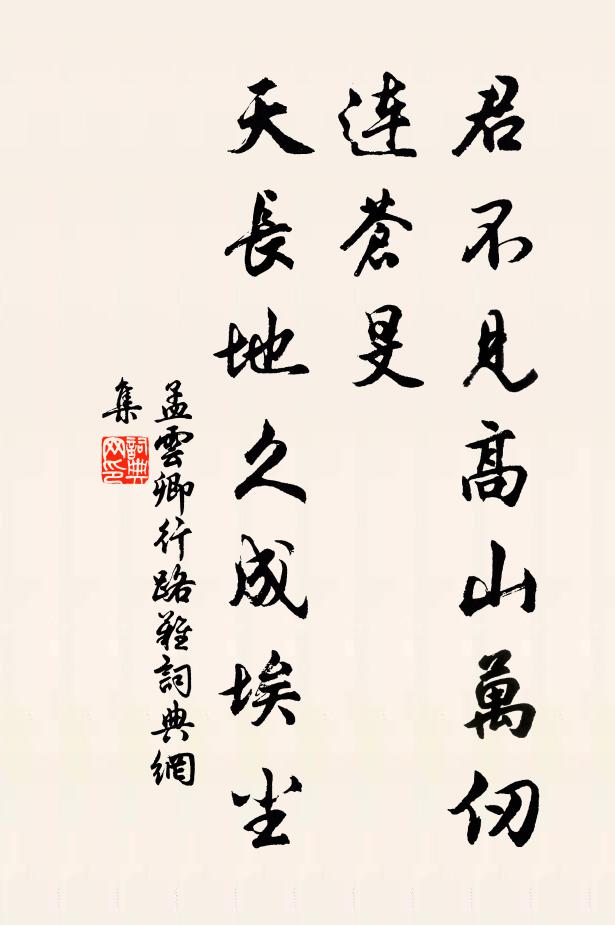 君不見高山萬仞
連蒼旻
天長地久成埃塵
孟雲卿行路難詞典網
集
詞典
网印